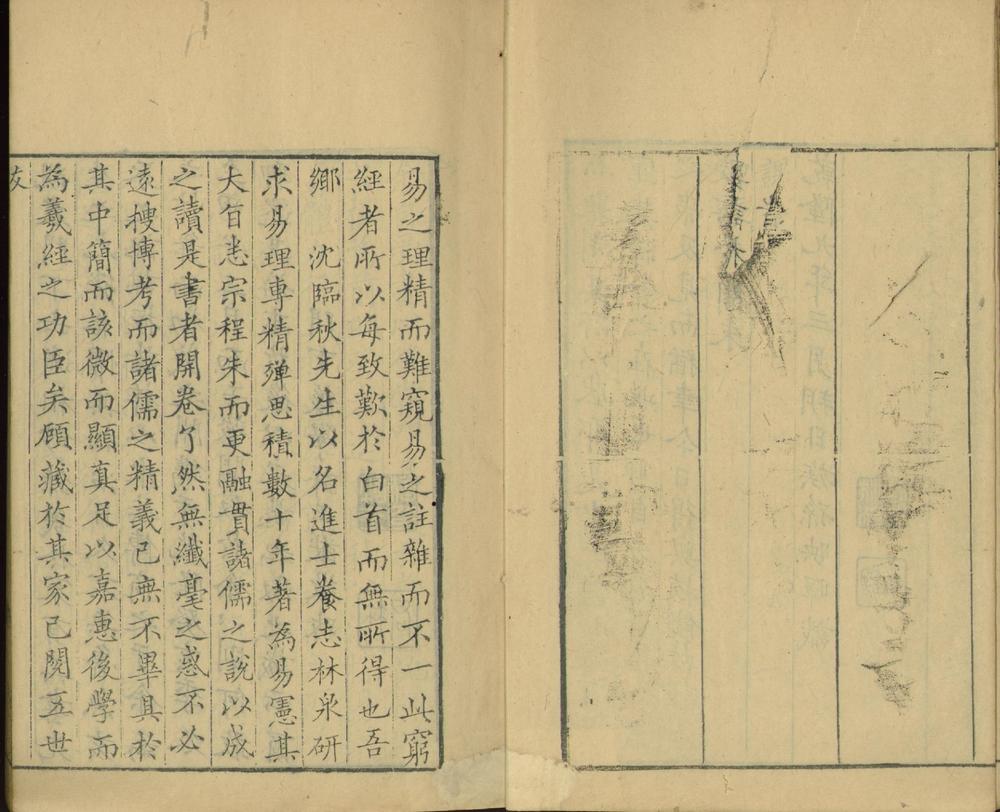 易之理精而難窺易之註雜而不一此窮
經者所以每致歎於白首而無所得也吾
鄉　沈臨秋先生以名進士養志林泉研
求易理專精殫思積數十年著為易憲其
大旨悉宗程朱而更融貫諸儒之說以成
之讀是書者開卷了然無纖毫之惑不必
遠搜博考而諸儒之精義已無不畢具於
其中簡而該微而顯真足以嘉惠後學而
為羲經之功臣矣顧藏於其家已閱五世